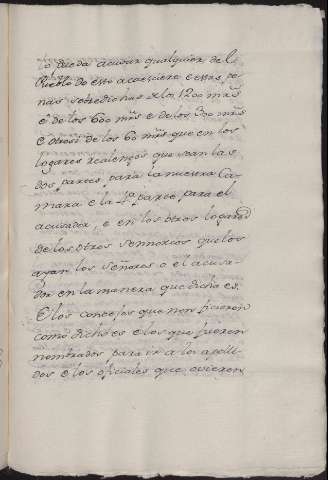 lo pueda acusar qualquier del
Pueblo do esto acaesciere e estas pe
nas sobredichas de los 1200 mrs
e de los 600 mrs e de los 300 mrs
e otrosi de los 60 mrs que en los
logares realengos que sean las
dos partes para la nuestra Ca
mara e la 4ª parte para el
acusador, e en los otros logares
de los otros sennorios que los
ayan los señores o el acusa
dor en la manera que dicha es.
E los concejos que non ficieren
como dicho es e los que fueren
nombrados para ir a los apelli
dos e los oficiales que ovieren